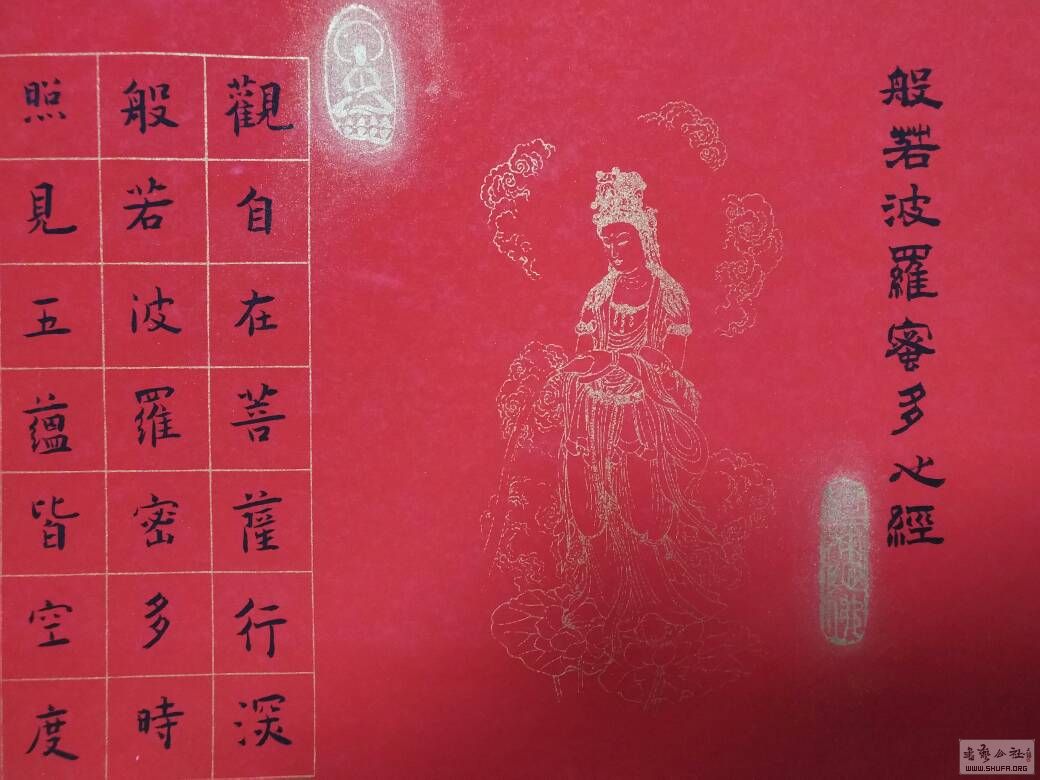 般若波羅蜜多心經
觀自在菩薩行深
般若波羅密多時
照見五蘊皆空度
WWW.SHUFA.ORG